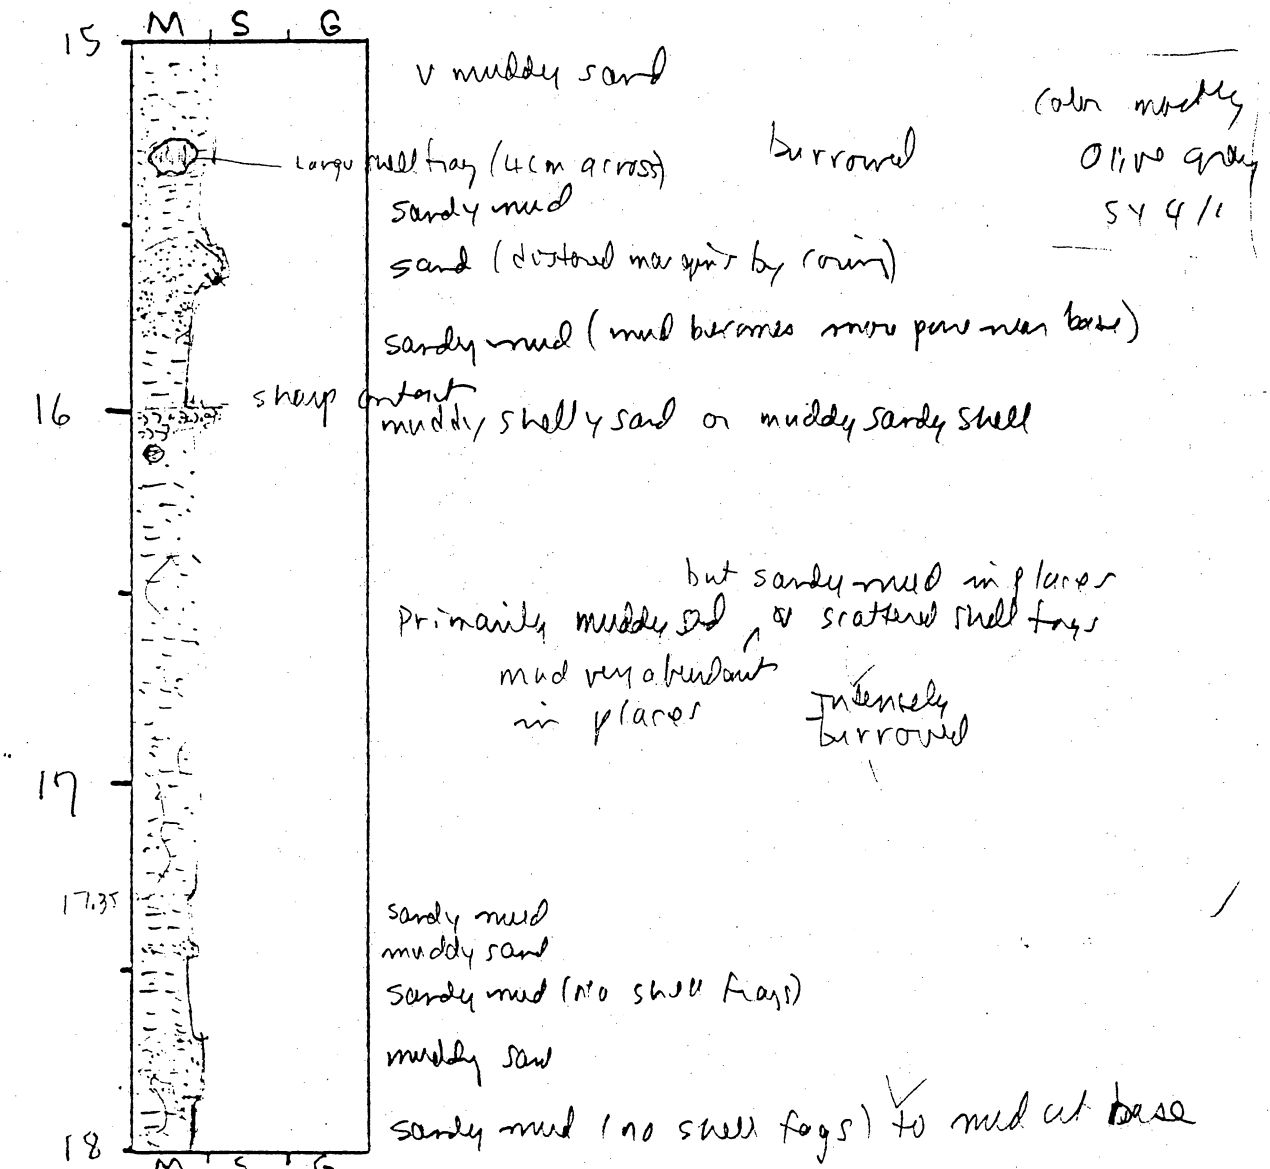 M S G
15
v muddy sand
color mostly
Olive gray
5Y 4/1
burrowed
Large shell frag (4cm across)
sandy mud
sand (distored margins by coring)
sandy mud (mud becomes more pure near base)
sharp contact
16
muddy shelly sand or muddy sandy shell
but sandy mud in places
Primarily muddy sand ^ w scattered shell frags
mud very abundant
in places
Intensely
burrowed
17
17.35
sandy mud
muddy sand
sandy mud (no shell frags)
muddy sand
sandy mud (no shell frags) to mud at base
18
M S G